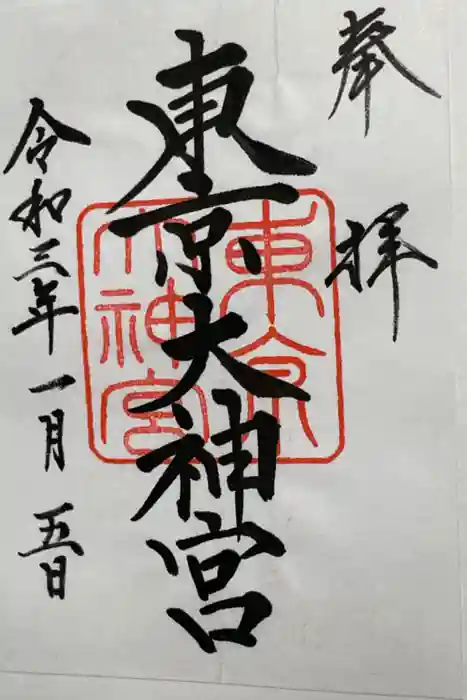 奉拝
東京大神宮
東京大神宮
令和三年一月五日